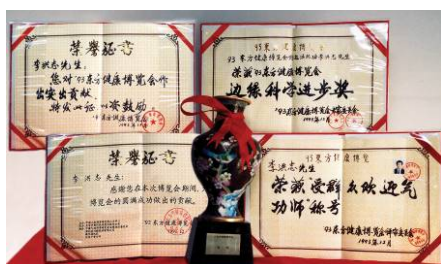 荣誉证书
李洪志先生：
您对'93东方健康博览会作
出突出贡献，
特发此证，以资鼓励。
'93东方健康博览会
1993年12月
李洪志先生
荣获'93东方健康博览会
边缘科学进步奖
'93东方健康博览会评审委员会
1993年12月
荣誉证书
李洪志先生：
感谢您在本次博览会期间，
博览会的圆满成功做出的贡献。
'93东方健康博览会
'93东方健康博览
李洪志先生
荣获受群众欢迎气
功师称号
'93东方健康博览会评审委员会
1993年12月